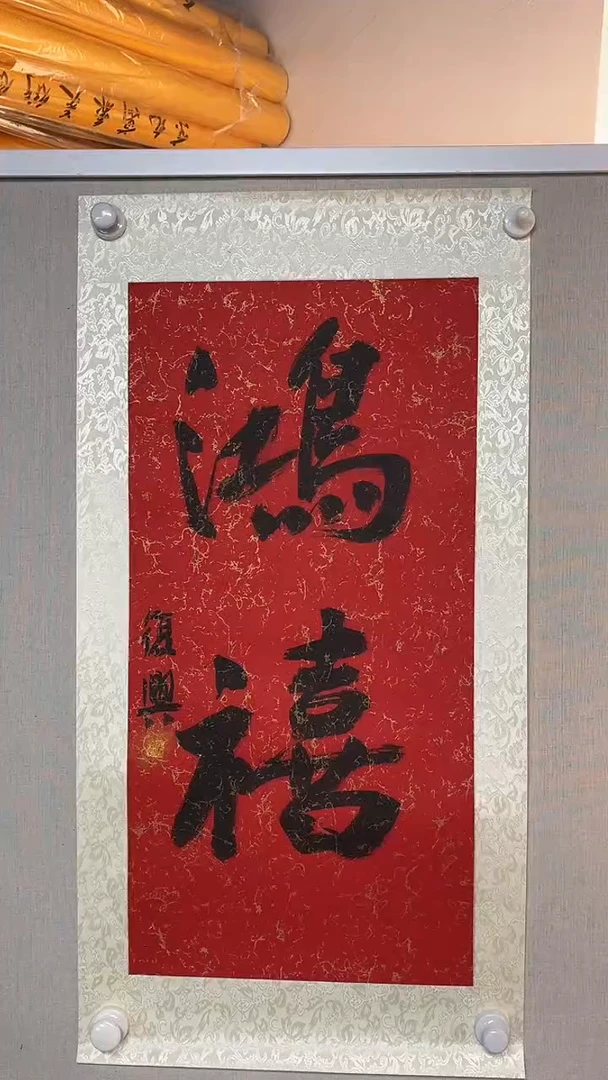 鴻禧
復興